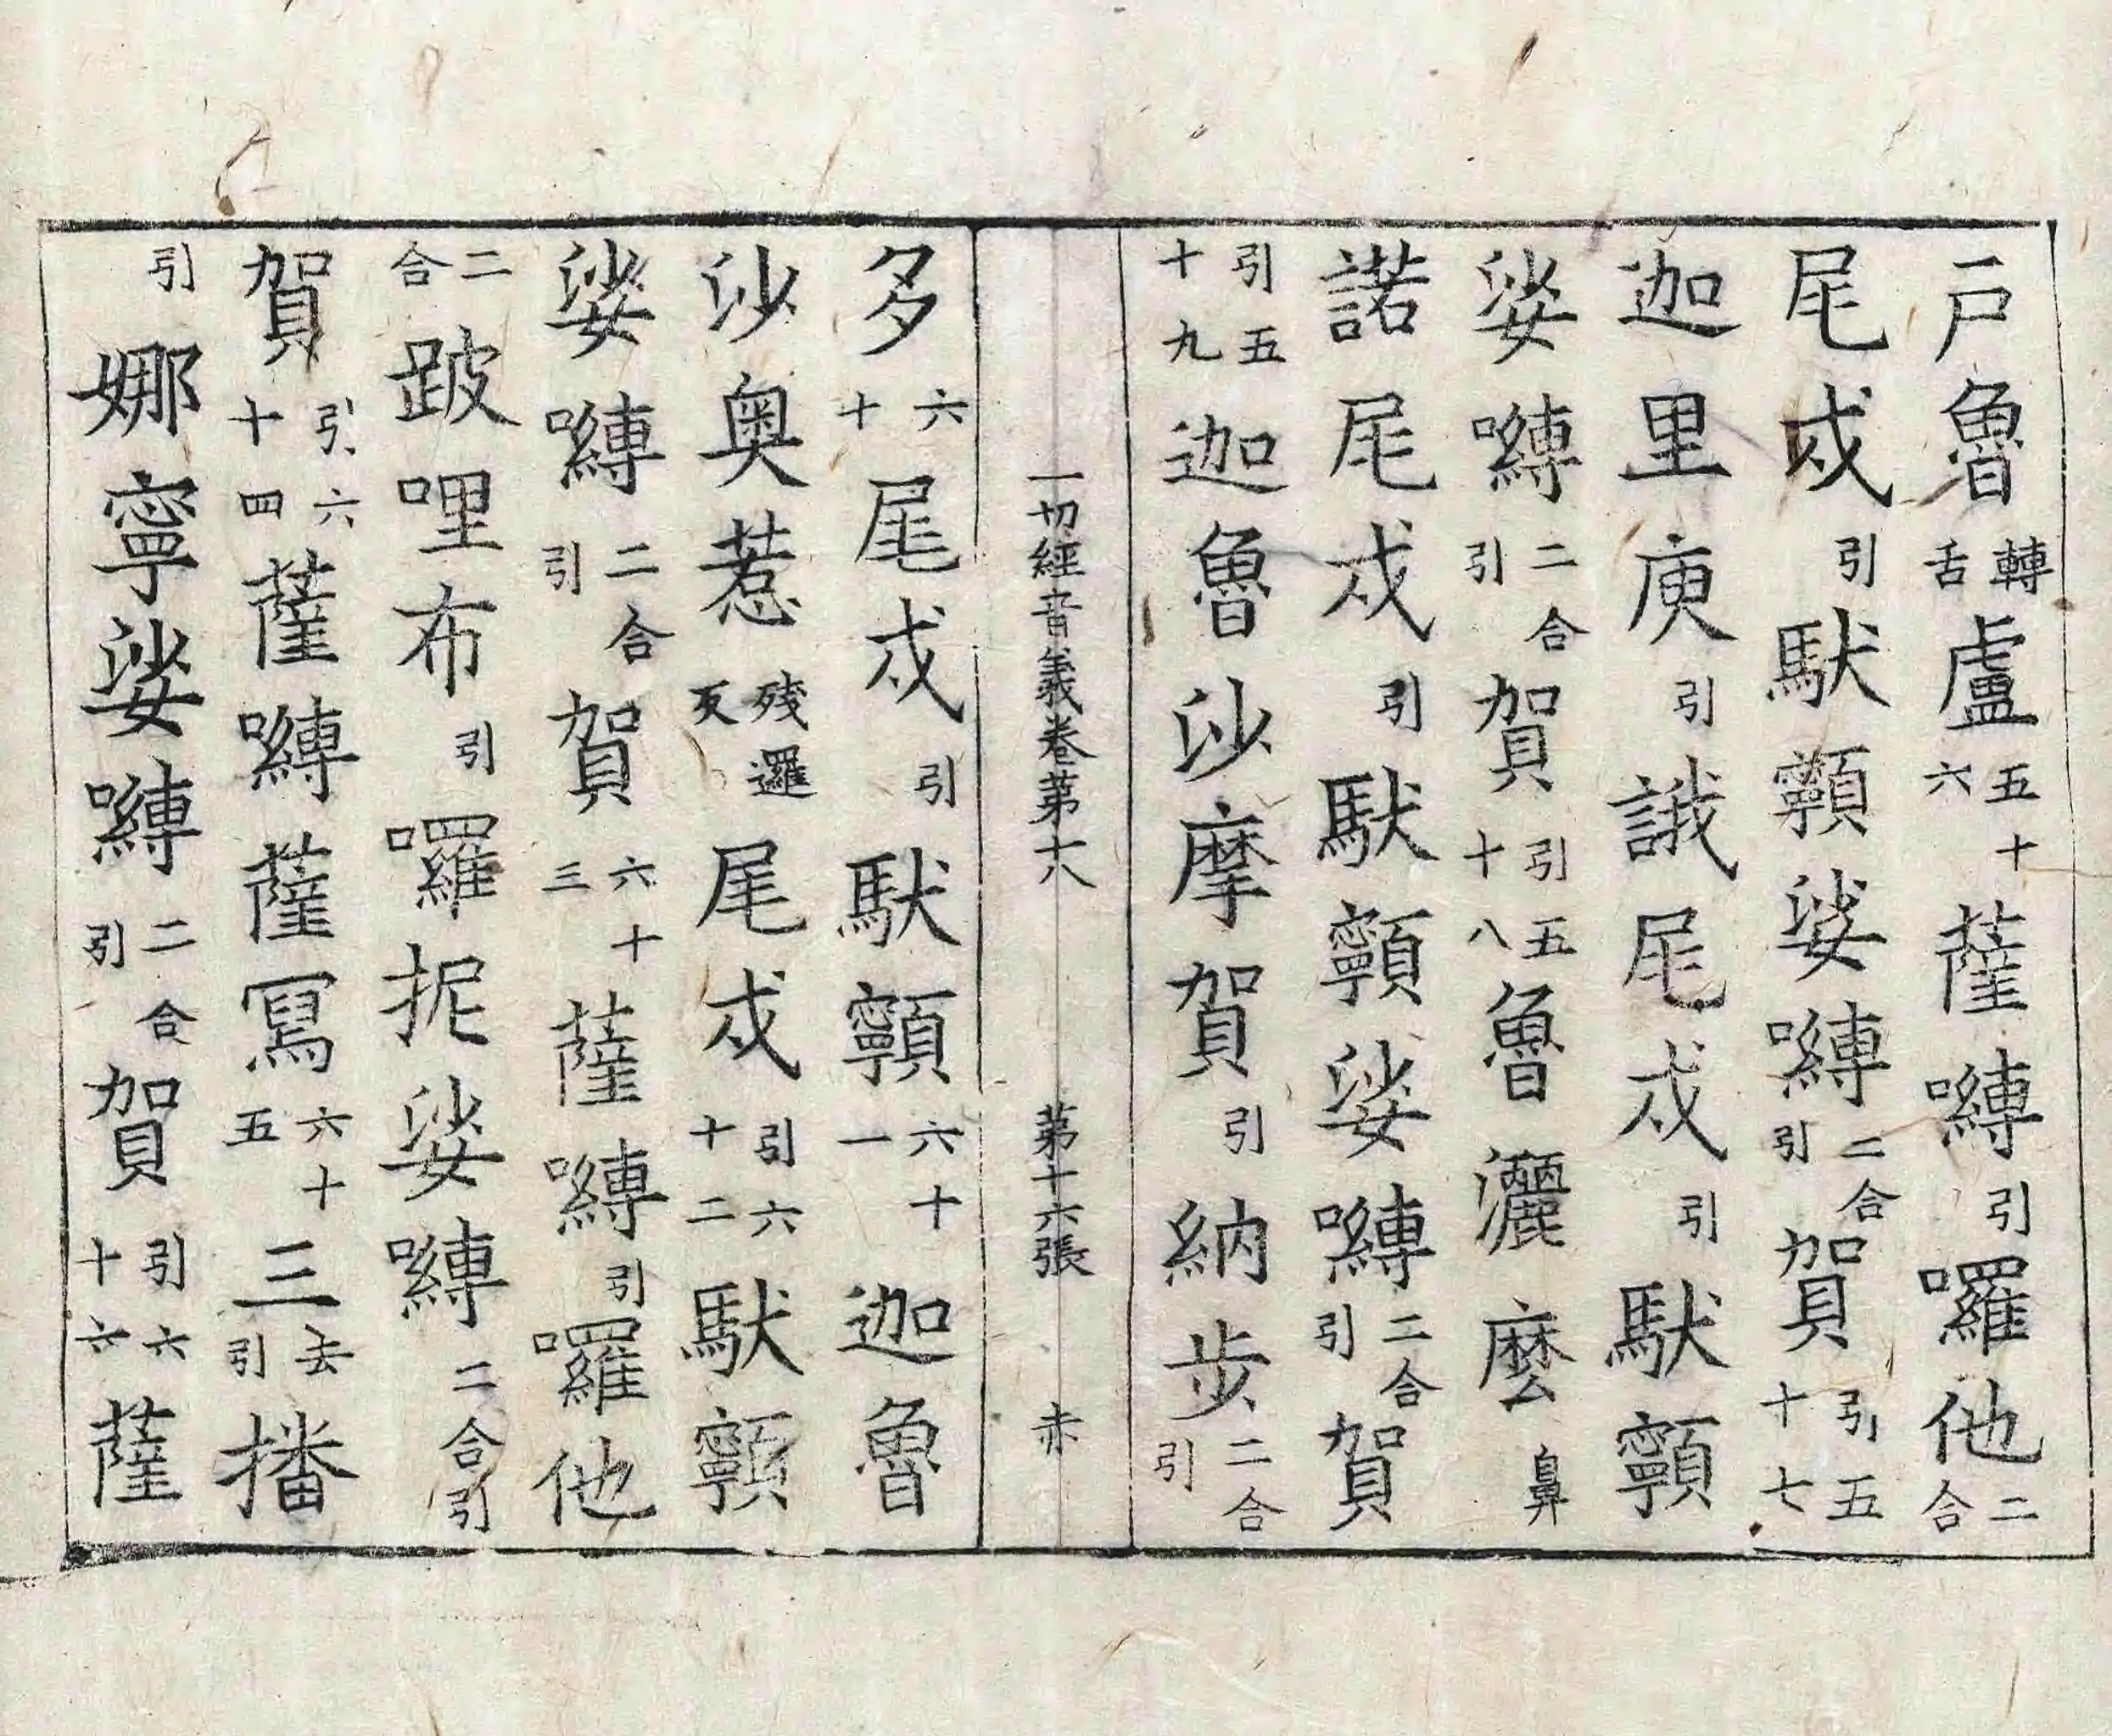 戸魯轉舌盧五十六薩嚩引囉他二合
尾戍引馱顐娑嚩二合引賀引五十七
迦里庾引誐尾戍引馱顐
娑嚩二合引賀引五十八魯灑麽鼻
諾尾戍引馱顐娑嚩二合引賀
引五十九迦魯沙摩賀引納歩二合引
一切經音義卷苐十八 苐十六張 赤
多六十尾戍引馱顐六十一迦魯
沙奥惹殘邏反尾戍引六十二馱顐
娑嚩二合引賀六十三薩嚩引囉他
二合跛哩布引囉抳娑嚩二合引
賀引六十四薩嚩薩寫六十五三去引播
引娜寧娑嚩二合引賀引六十六薩